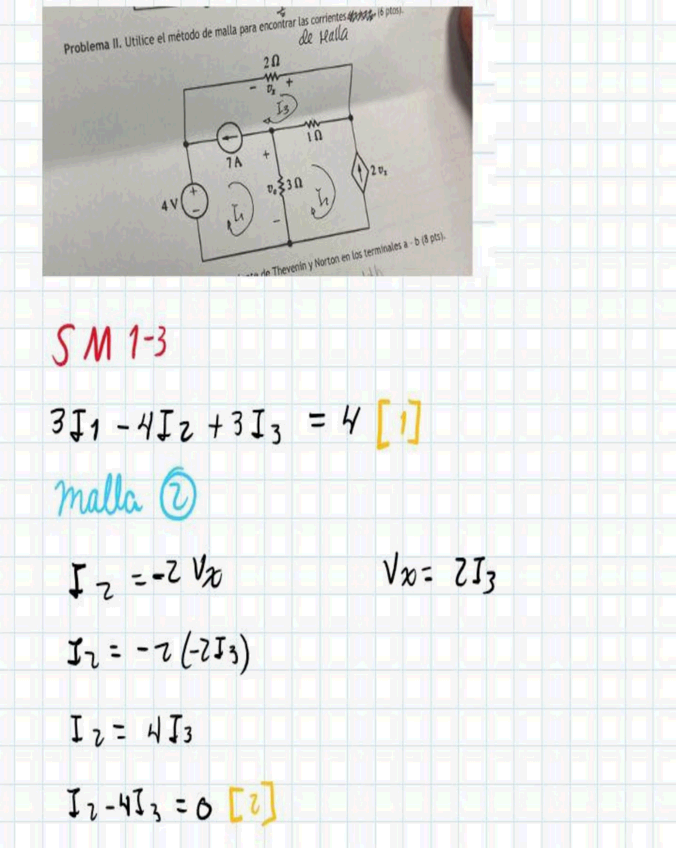 Problema II. Utilice el método de malla para encontrar las corrientes (6 ptos).
de malla
2Ω
- vx +
I3
7A
1Ω
+
4V
+
-
I1
vo
3Ω
-
I2
2vx
de Thevenin y Norton en los terminales a - b (8 pts).
SM 1-3
3I1 - 4I2 + 3I3 = 4 [1]
malla ②
I2 = -2 Vx
Vx = 2I3
I2 = -2 (-2I3)
I2 = 4I3
I2 - 4I3 = 0 [2]